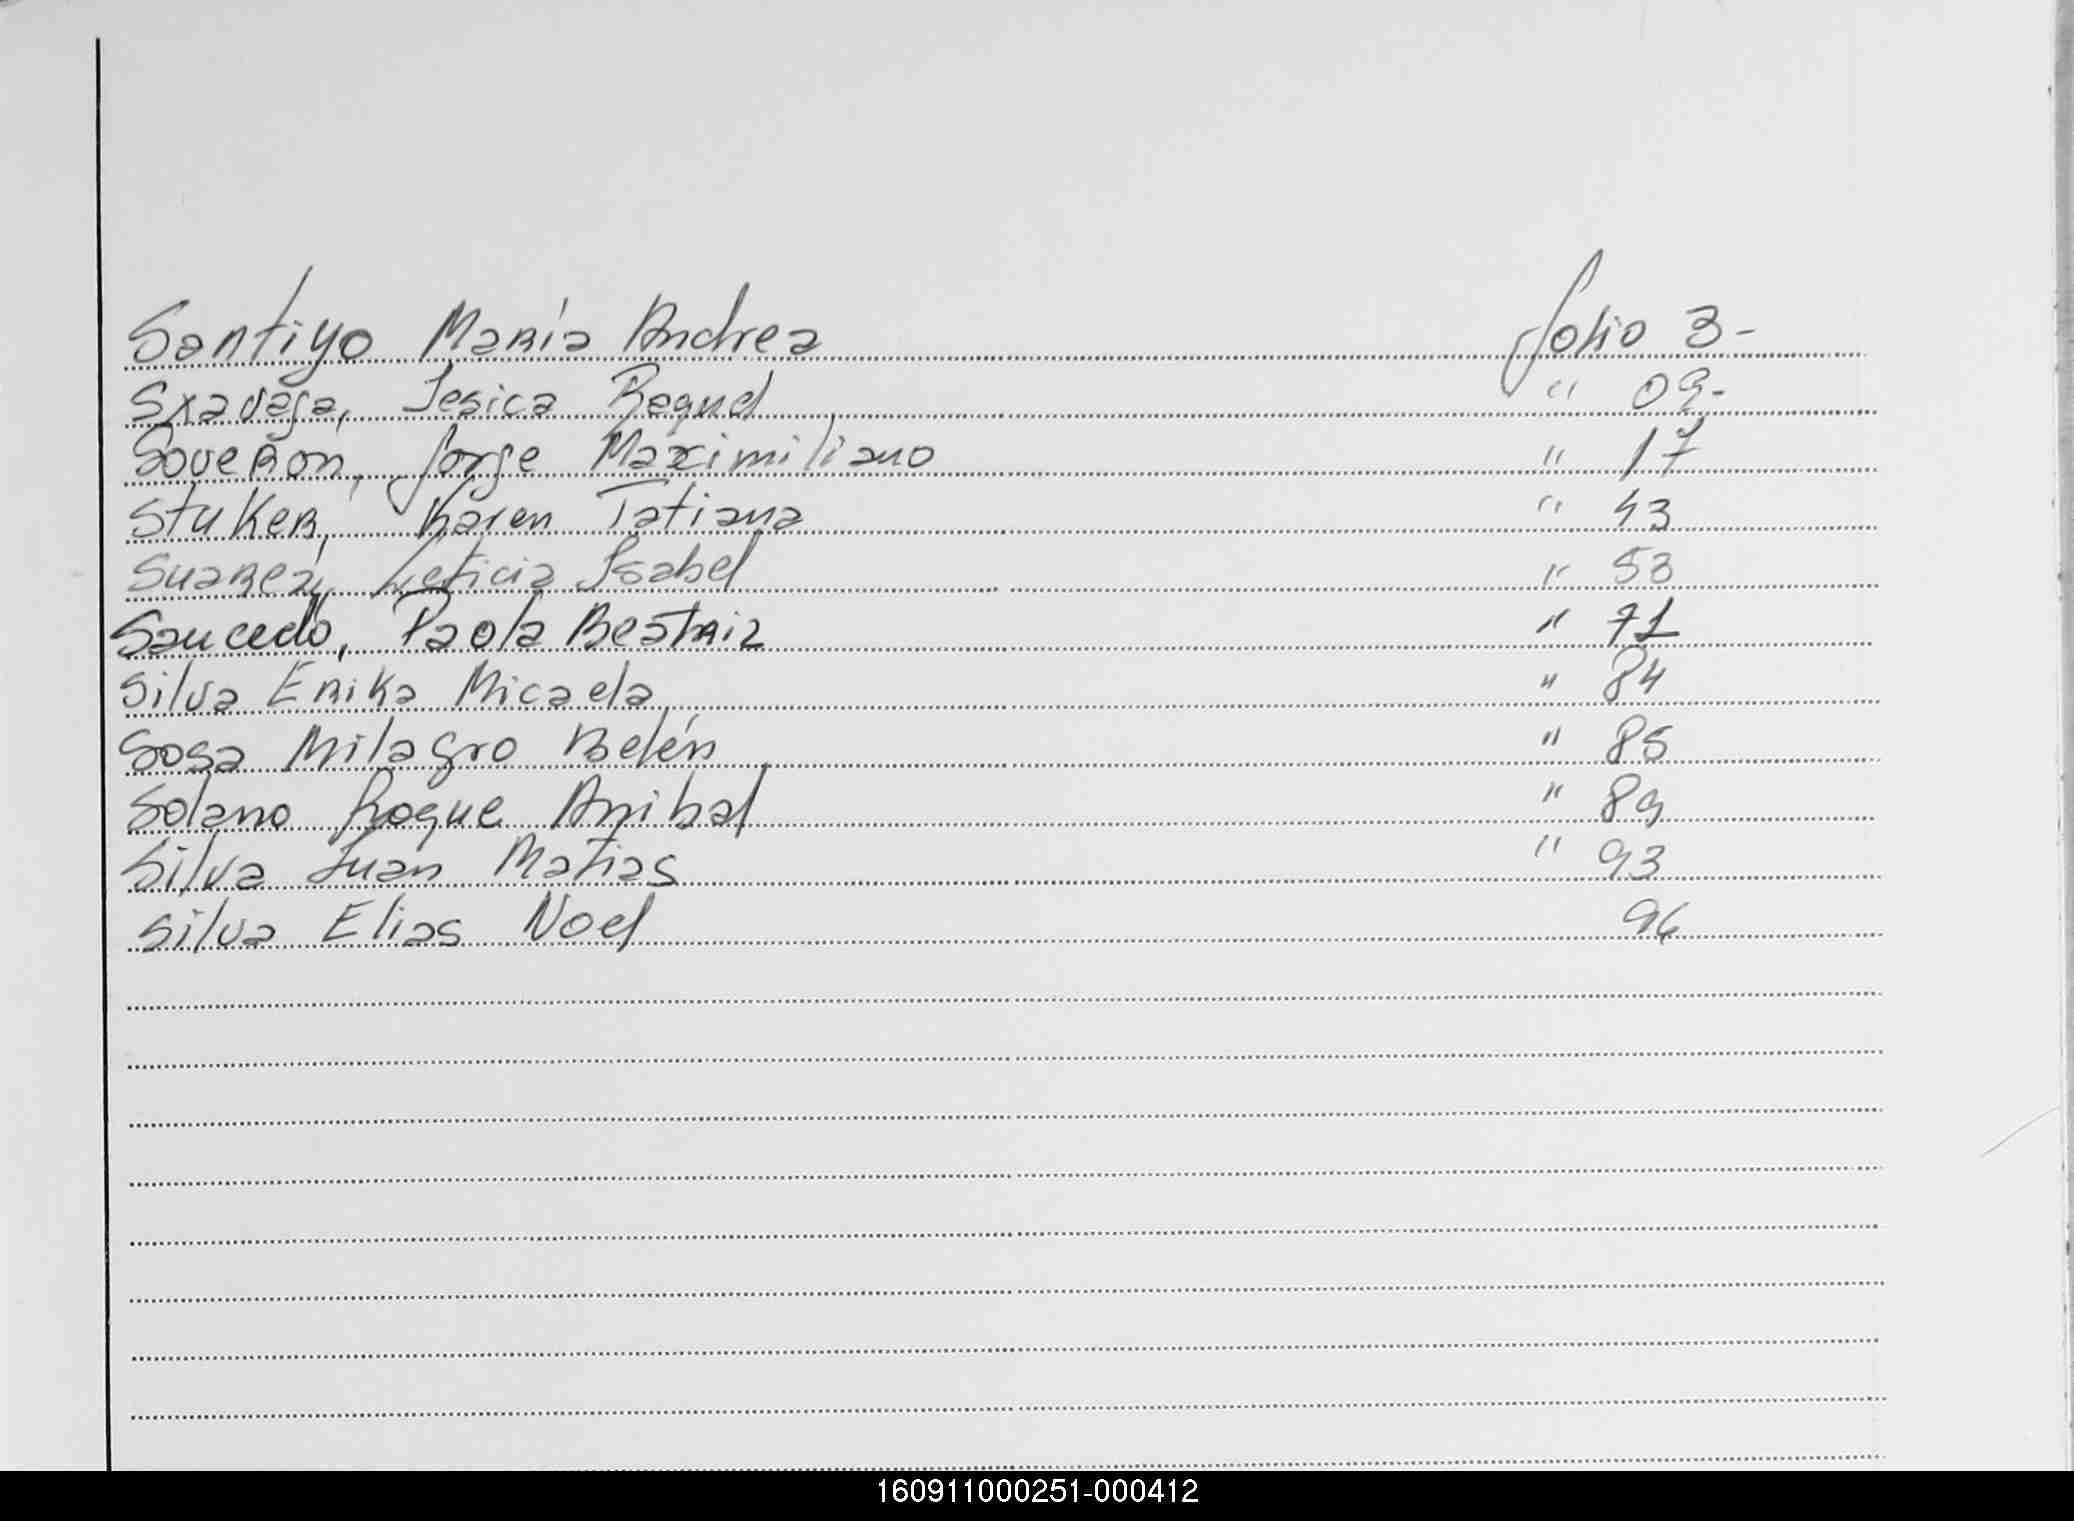 Santiyo María Andrea folio 3-
Sxadaga, Jesica Raquel " 09-
Soveron, Jorge Maximiliano " 17
Stuker, Karen Tatiana " 43
Suarez, Leticia Isabel " 53
Saucedo, Paola Beatriz " 71
Silva Erika Micaela " 84
Sosa Milagro Belén " 85
Solano Roque Anibal " 89
Silva Juan Matias " 93
Silva Elias Noel 96
160911000251-000412